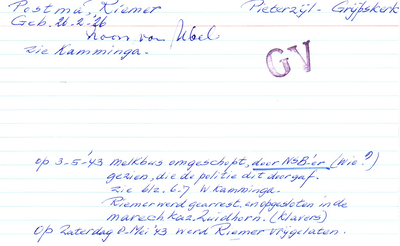 Postma, Riemer Pieterzijl - Grijpskerk
Geb. 26-2-'26
zoon van Ubel
zie Kamminga.
GV
op 3-5-'43 melkbus omgeschopt, door NSB'er (wie?)
gezien, die de politie dit doorgaf.
zie blz. 6-7 W Kamminga.
Riemer werd gearrest. en opgesloten in de
marech kaz Zuidhorn. (Klavers)
Op Zaterdag 8-Mei '43 werd Riemer vrijgelaten.